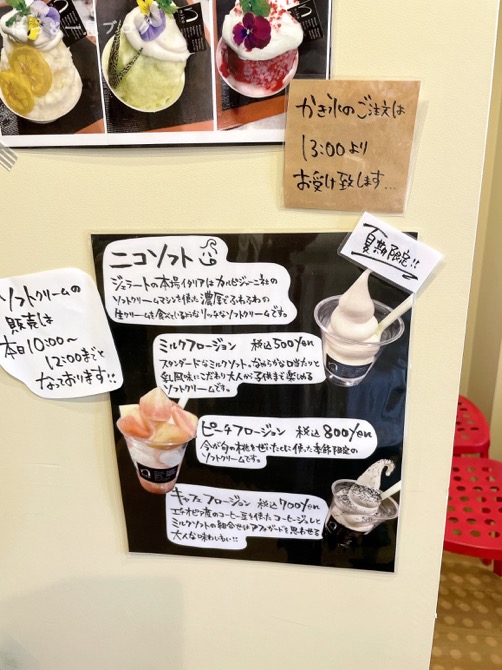 かき氷のご注文は
13:00より
お受け致します...
夏期限定!!
ニコソフト
ジェラートの本場イタリアはカルピジャーニ社の
ソフトクリームマシンを使った濃厚でふわふわの
生クリームを食べているようなリッチなソフトクリームです。
ソフトクリームの
販売は
本日10:00〜
12:00まで と
なっております!!
ミルクフロージョン 税込500yen
スタンダードなミルクソフト。なめらかな口当たりと
乳風味にこだわり大人から子供まで楽しめる
ソフトクリームです。
ピーチフロージョン 税込800yen
今が旬の桃をぜいたくに使った季節限定の
ソフトクリームです。
キャフェフロージョン 税込700yen
エチオピア産のコーヒー豆を使ったコーヒージュレと
ミルクソフトの組合せはアフォガードを思わせる
大人な味わい!!